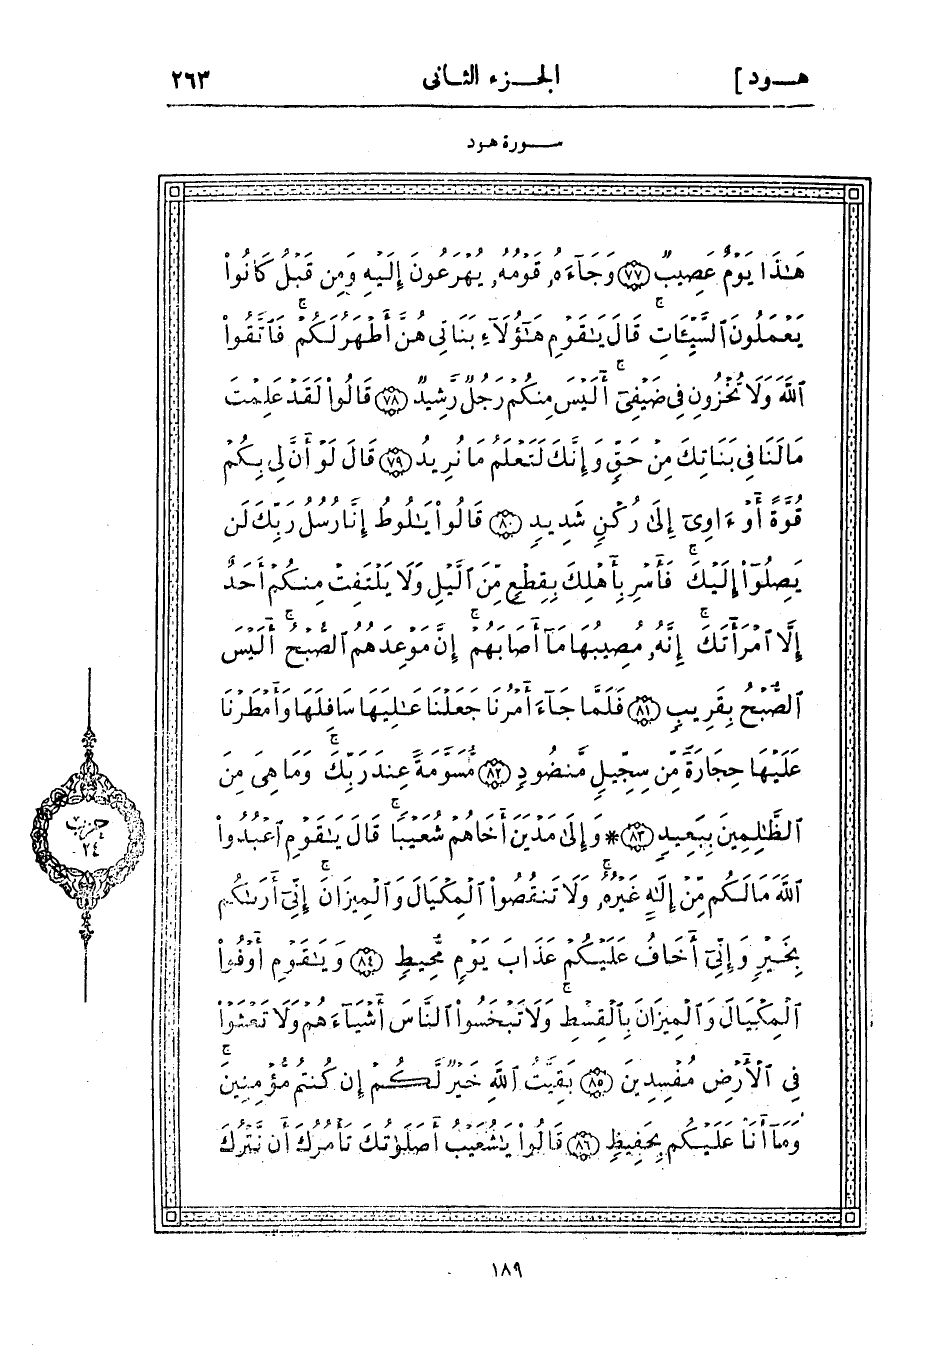 هـــود ]
الجـــزء الثـانى
٢٦٣
ســـورة هود
هَـٰذَا يَوْمٌ عَصِيبٌ ﴿٧٧﴾ وَجَآءَهُۥ قَوْمُهُۥ يُهْرَعُونَ إِلَيْهِ وَمِن قَبْلُ كَانُوا۟
يَعْمَلُونَ ٱلسَّيِّـَٔاتِ ۚ قَالَ يَـٰقَوْمِ هَـٰٓؤُلَآءِ بَنَاتِى هُنَّ أَطْهَرُ لَكُمْ ۖ فَٱتَّقُوا۟
ٱللَّهَ وَلَا تُخْزُونِ فِى ضَيْفِىٓ ۖ أَلَيْسَ مِنكُمْ رَجُلٌ رَّشِيدٌ ﴿٧٨﴾ قَالُوا۟ لَقَدْ عَلِمْتَ
مَا لَنَا فِى بَنَاتِكَ مِنْ حَقٍّ وَإِنَّكَ لَتَعْلَمُ مَا نُرِيدُ ﴿٧٩﴾ قَالَ لَوْ أَنَّ لِى بِكُمْ
قُوَّةً أَوْ ءَاوِىٓ إِلَىٰ رُكْنٍ شَدِيدٍ ﴿٨٠﴾ قَالُوا۟ يَـٰلُوطُ إِنَّا رُسُلُ رَبِّكَ لَن
يَصِلُوٓا۟ إِلَيْكَ ۖ فَأَسْرِ بِأَهْلِكَ بِقِطْعٍ مِّنَ ٱلَّيْلِ وَلَا يَلْتَفِتْ مِنكُمْ أَحَدٌ
إِلَّا ٱمْرَأَتَكَ ۖ إِنَّهُۥ مُصِيبُهَا مَآ أَصَابَهُمْ ۚ إِنَّ مَوْعِدَهُمُ ٱلصُّبْحُ ۚ أَلَيْسَ
ٱلصُّبْحُ بِقَرِيبٍ ﴿٨١﴾ فَلَمَّا جَآءَ أَمْرُنَا جَعَلْنَا عَـٰلِيَهَا سَافِلَهَا وَأَمْطَرْنَا
عَلَيْهَا حِجَارَةً مِّن سِجِّيلٍ مَّنضُودٍ ﴿٨٢﴾ مُّسَوَّمَةً عِندَ رَبِّكَ ۖ وَمَا هِىَ مِنَ
ٱلظَّـٰلِمِينَ بِبَعِيدٍ ﴿٨٣﴾ * وَإِلَىٰ مَدْيَنَ أَخَاهُمْ شُعَيْبًا ۚ قَالَ يَـٰقَوْمِ ٱعْبُدُوا۟
ٱللَّهَ مَا لَكُم مِّنْ إِلَـٰهٍ غَيْرُهُۥ ۖ وَلَا تَنقُصُوا۟ ٱلْمِكْيَالَ وَٱلْمِيزَانَ ۚ إِنِّىٓ أَرَىٰكُم
بِخَيْرٍ وَإِنِّىٓ أَخَافُ عَلَيْكُمْ عَذَابَ يَوْمٍ مُّحِيطٍ ﴿٨٤﴾ وَيَـٰقَوْمِ أَوْفُوا۟
ٱلْمِكْيَالَ وَٱلْمِيزَانَ بِٱلْقِسْطِ ۖ وَلَا تَبْخَسُوا۟ ٱلنَّاسَ أَشْيَآءَهُمْ وَلَا تَعْثَوْا۟
فِى ٱلْأَرْضِ مُفْسِدِينَ ﴿٨٥﴾ بَقِيَّتُ ٱللَّهِ خَيْرٌ لَّكُمْ إِن كُنتُم مُّؤْمِنِينَ ۚ
وَمَآ أَنَا۠ عَلَيْكُم بِحَفِيظٍ ﴿٨٦﴾ قَالُوا۟ يَـٰشُعَيْبُ أَصَلَوٰتُكَ تَأْمُرُكَ أَن نَّتْرُكَ
حزب
٢٤
١٨٩